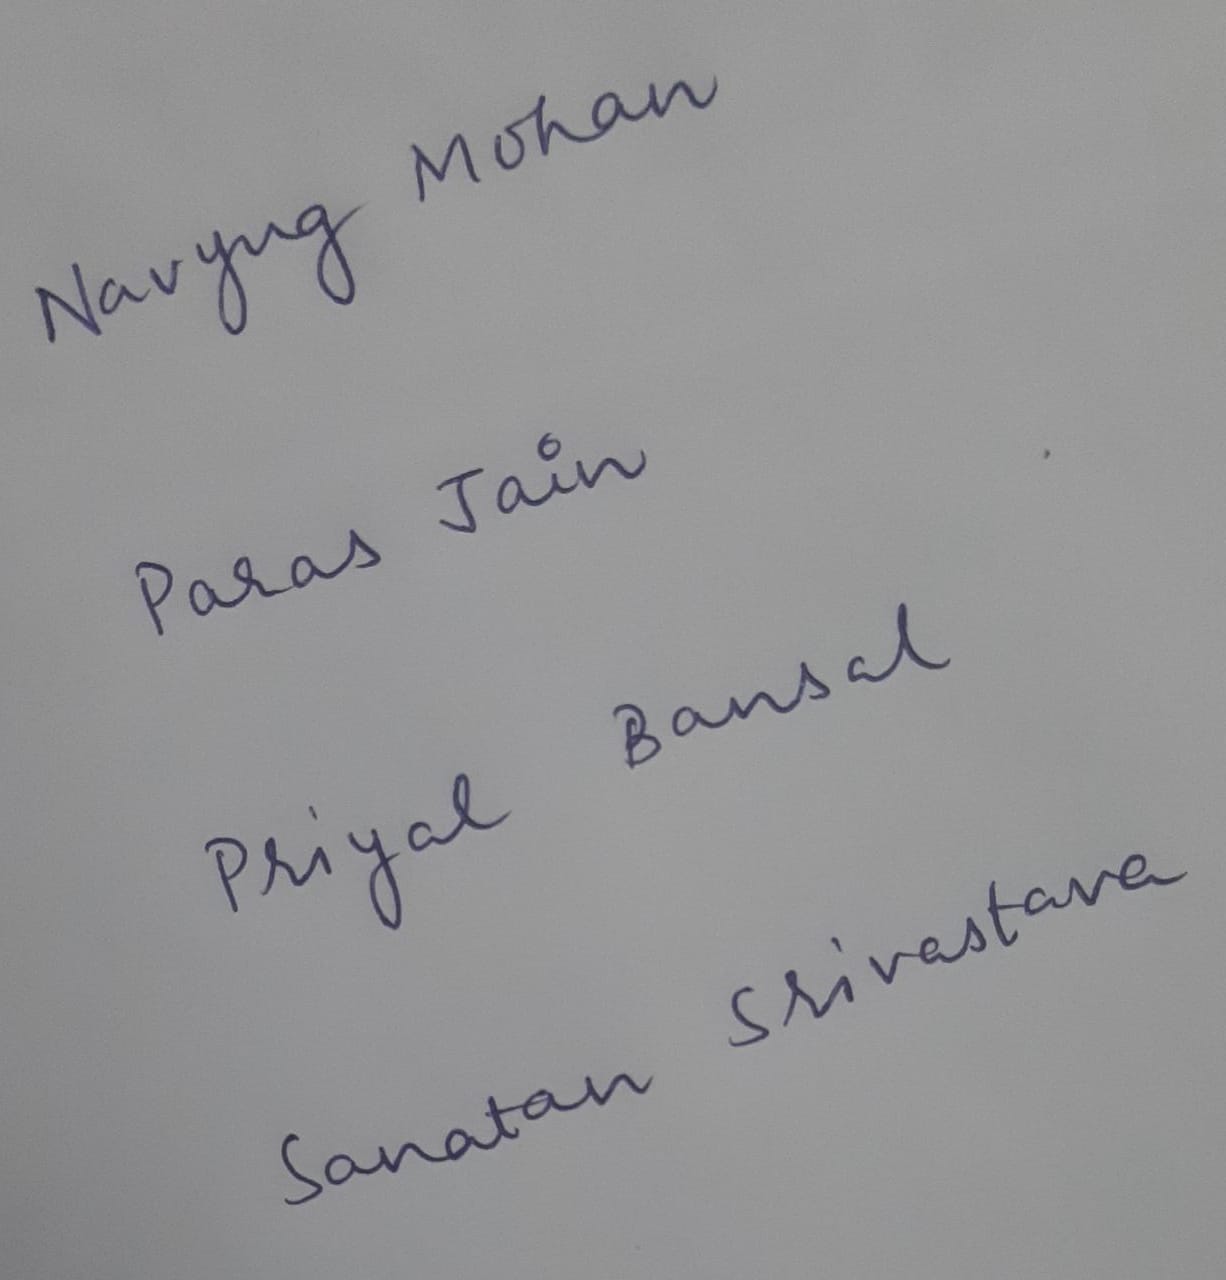 Navyug Mohan
Paras Jain
Priyal Bansal
Sanatan Srivastava